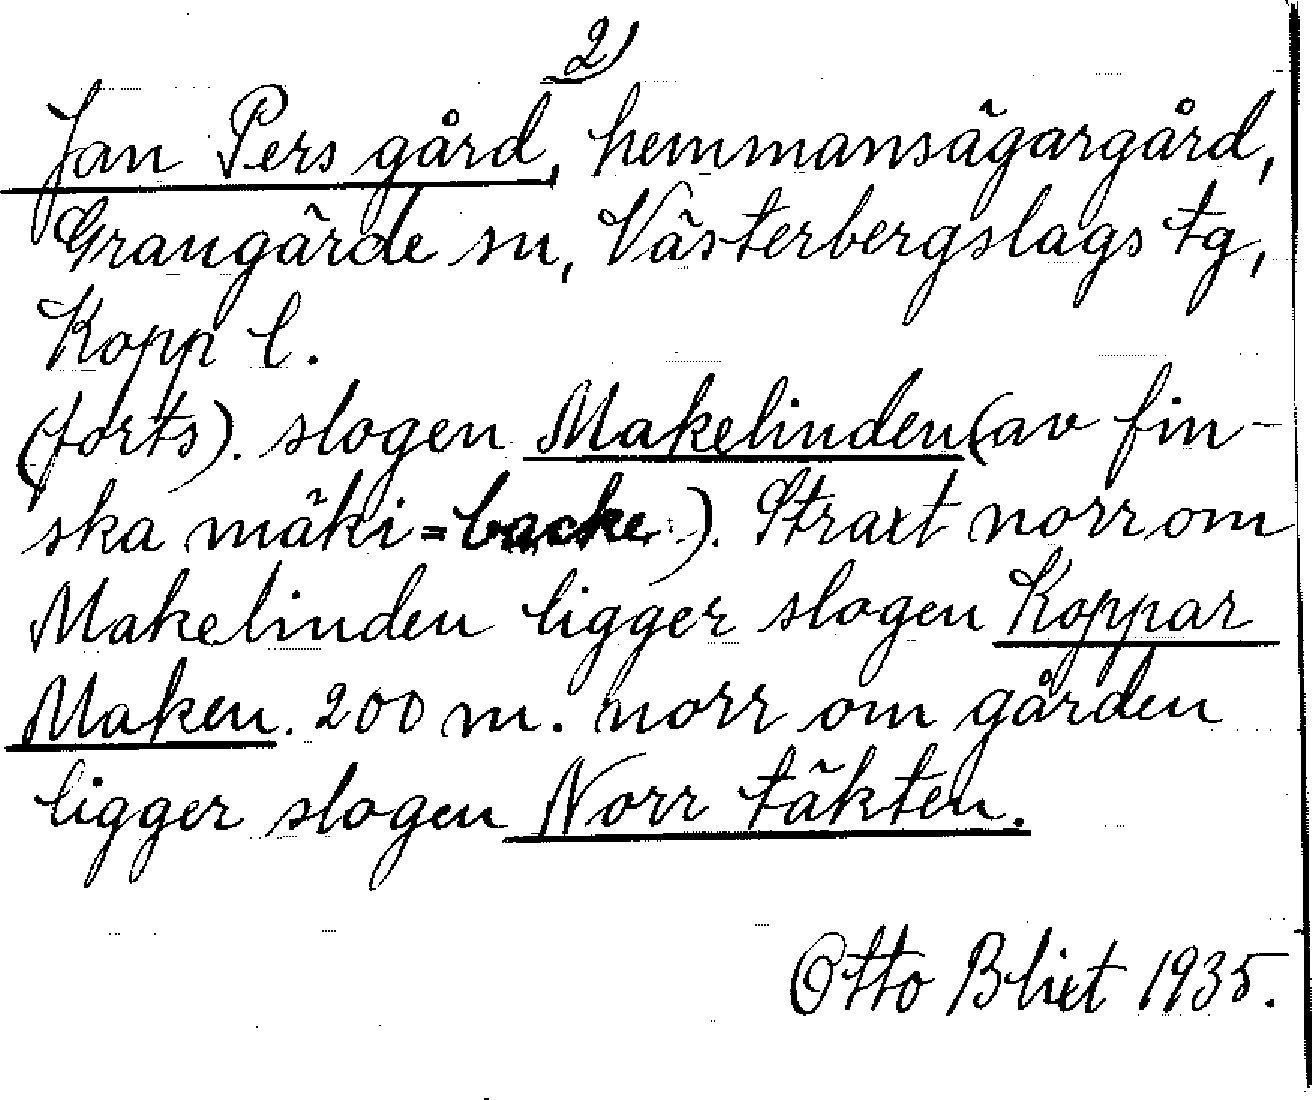 2)
Jan Pers gård, hemmansägargård,
Grangärde sn, Västerbergslags tg,
Kopp l.
(forts). slogen Makelinden (av fin-
ska mäki = backe). Straxt norr om
Makelinden ligger slogen Koppar
Maken. 200 m. norr om gården
ligger slogen Norr täkten.
Otto Blixt 1935.